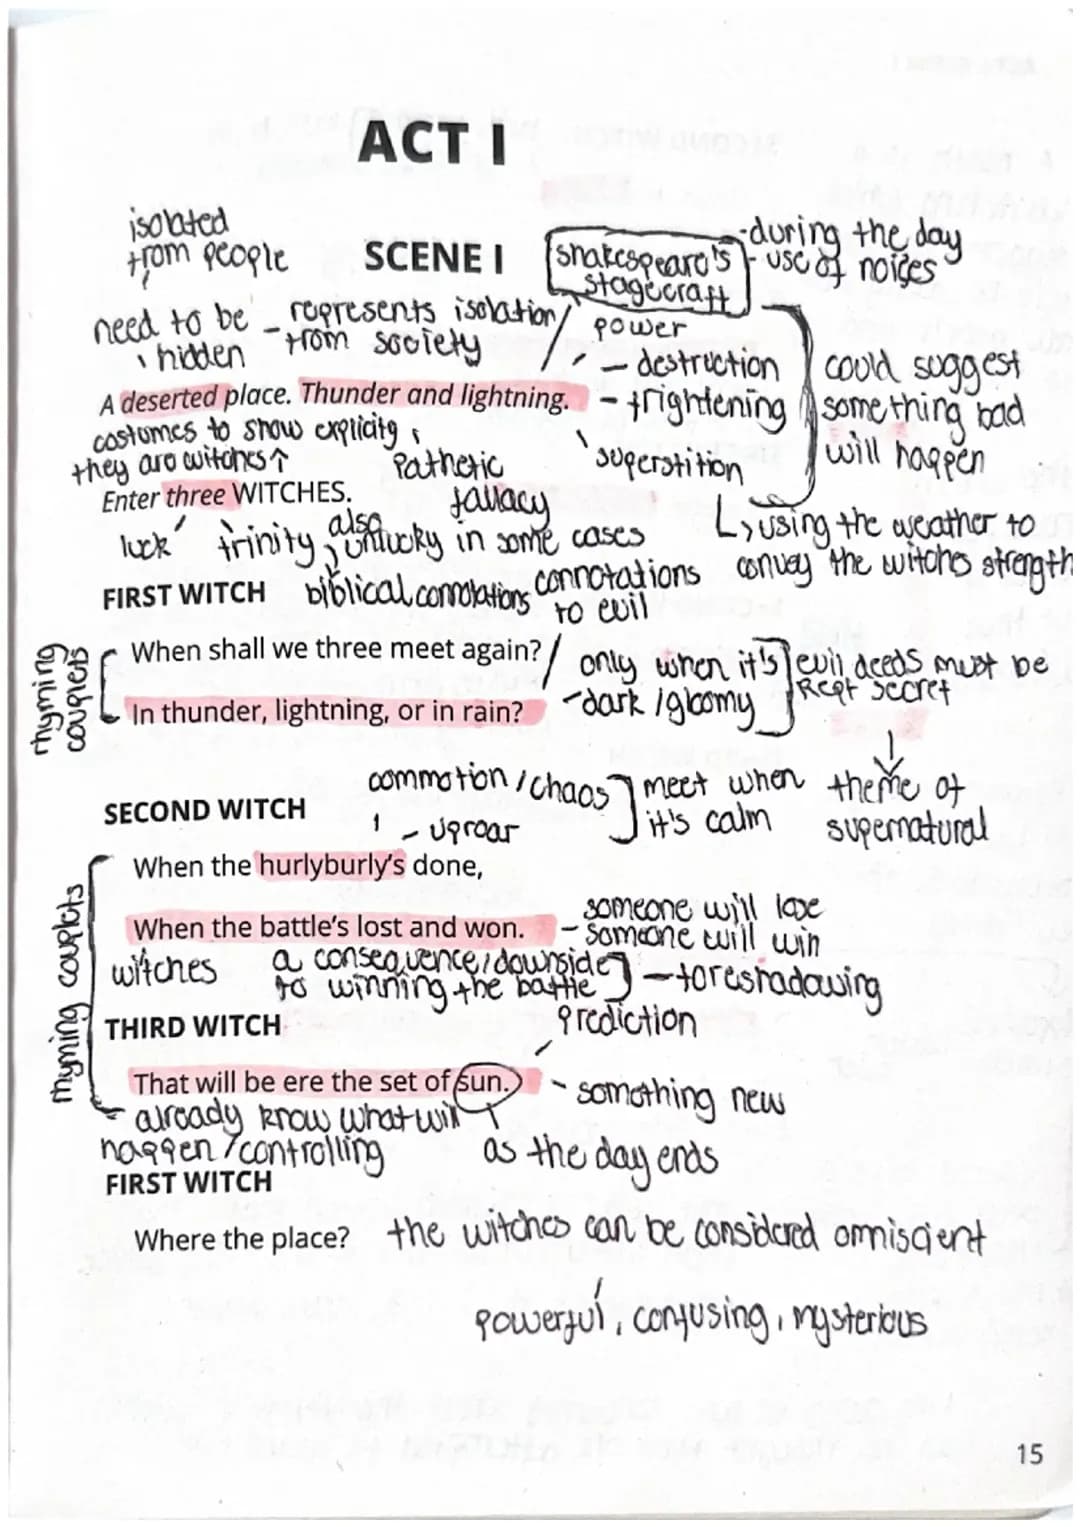 ACT I
isolated
from people
SCENE I
Shakespeare's
stagecraft
-during the day
- use of noices
need to be
hidden
- represents isolation
from society
power
- destruction
- frightening
superstition
could suggest
something bad
will happen
A deserted place. Thunder and lightning.
costumes to show explicity
they are witches↑
Pathetic
fallacy
Enter three WITCHES.
luck
trinity
also
unlucky in some cases
↳ using the weather to
convey the witches strength
FIRST WITCH
biblical connotations
connotations
to evil
When shall we three meet again?
In thunder, lightning, or in rain?
rhyming
couplets
only when it's
dark / gloomy
evil deeds must be
kept secret
theme of
supernatural
SECOND WITCH
commotion / chaos
- uproar
meet when
it's calm
When the hurlyburly's done,
When the battle's lost and won.
rhyming couplets
someone will lose
- someone will win
witches
a consequence/downside
to winning the battle
- foreshadowing
THIRD WITCH
prediction
That will be ere the set of sun.
- something new
already know what will
happen / controlling
as the day ends
FIRST WITCH
Where the place?
the witches can be considered omniscient
powerful, confusing, mysterious
15